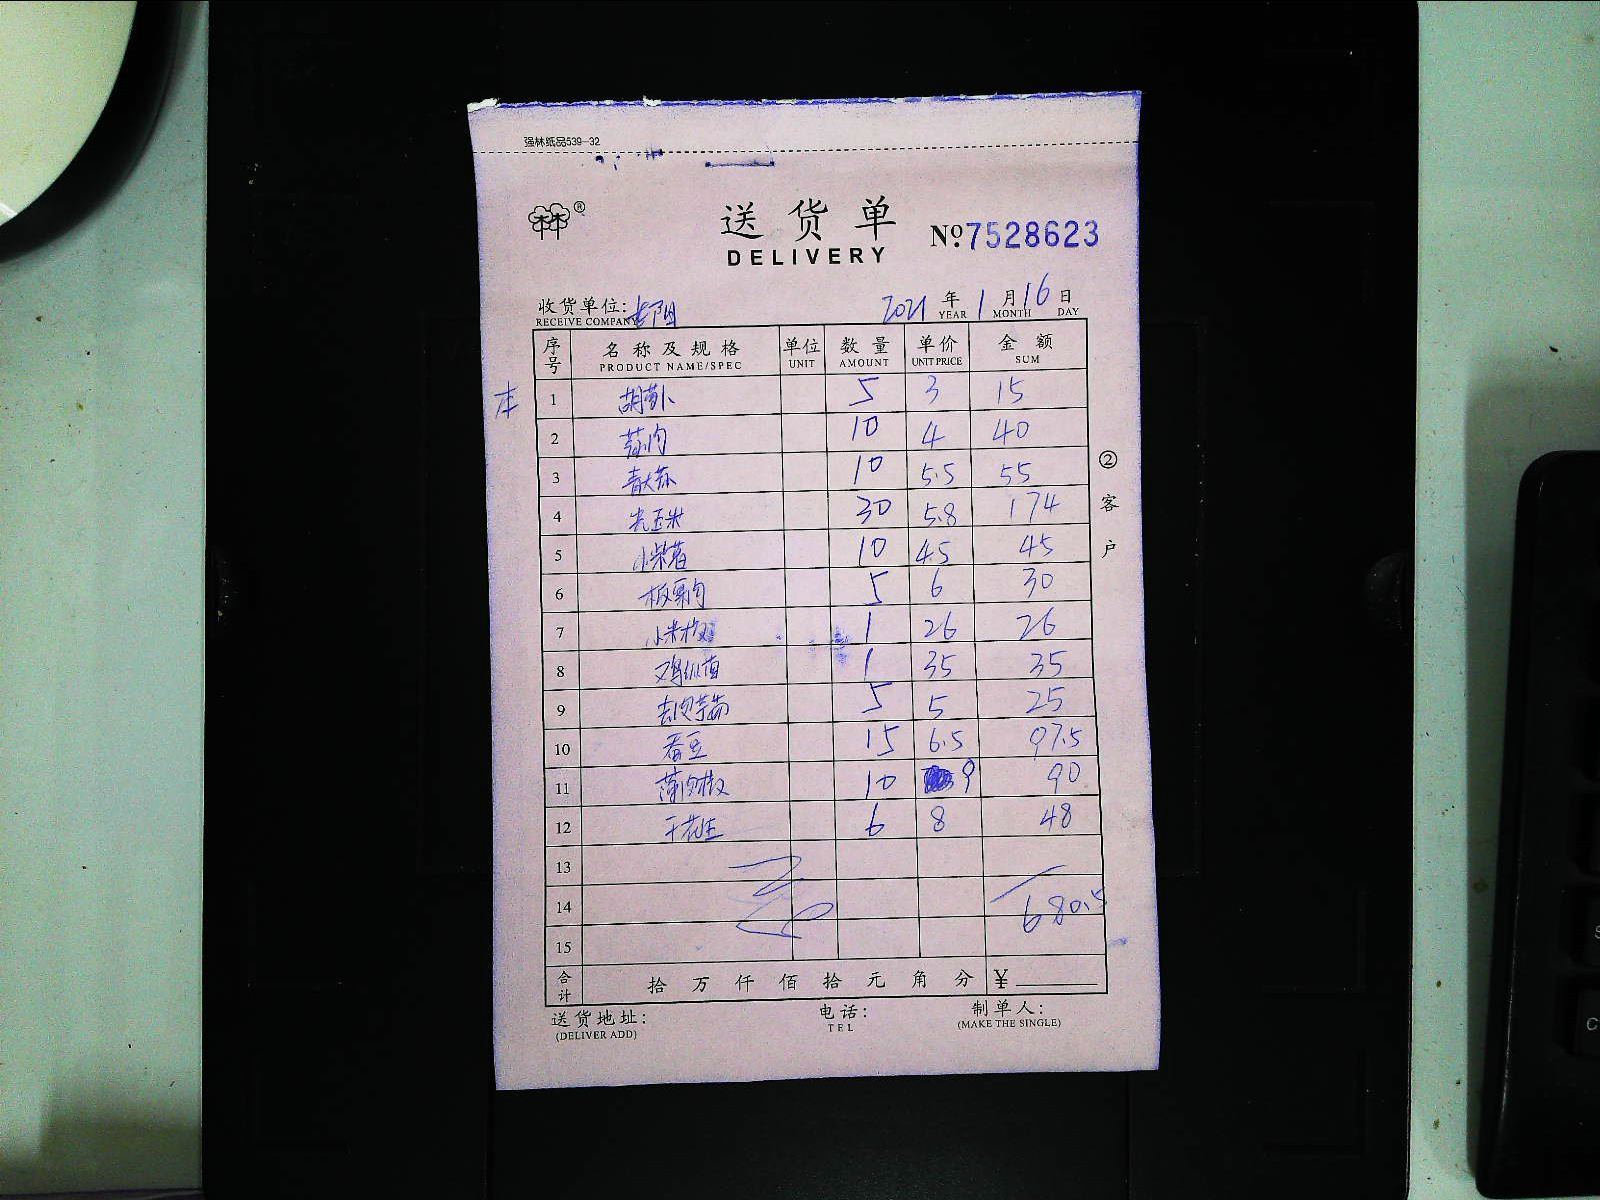 强林纸品539-32
林®
送货单 №7528623
DELIVERY
收货单位: 2021 年 1 月 16 日
RECEIVE COMPANY YEAR MONTH DAY
序号 名称及规格 单位 数量 单价 金额
PRODUCT NAME/SPEC UNIT AMOUNT UNIT PRICE SUM
本 1 胡萝卜 5 3 15
2 蒜肉 10 4 40
3 青大蒜 10 5.5 55
4 光玉米 30 5.8 174
5 小紫薯 10 4.5 45
6 板栗肉 5 6 30
7 小米椒 1 26 26
8 鸡纵菌 1 35 35
9 去皮芋艿 5 5 25
10 香豆 15 6.5 97.5
11 薄肉椒 10 9 90
12 干花生 6 8 48
13
14 680.5
15
合计 拾 万 仟 佰 拾 元 角 分 ¥
送货地址: 电话: 制单人:
(DELIVER ADD) TEL (MAKE THE SINGLE)
②客户